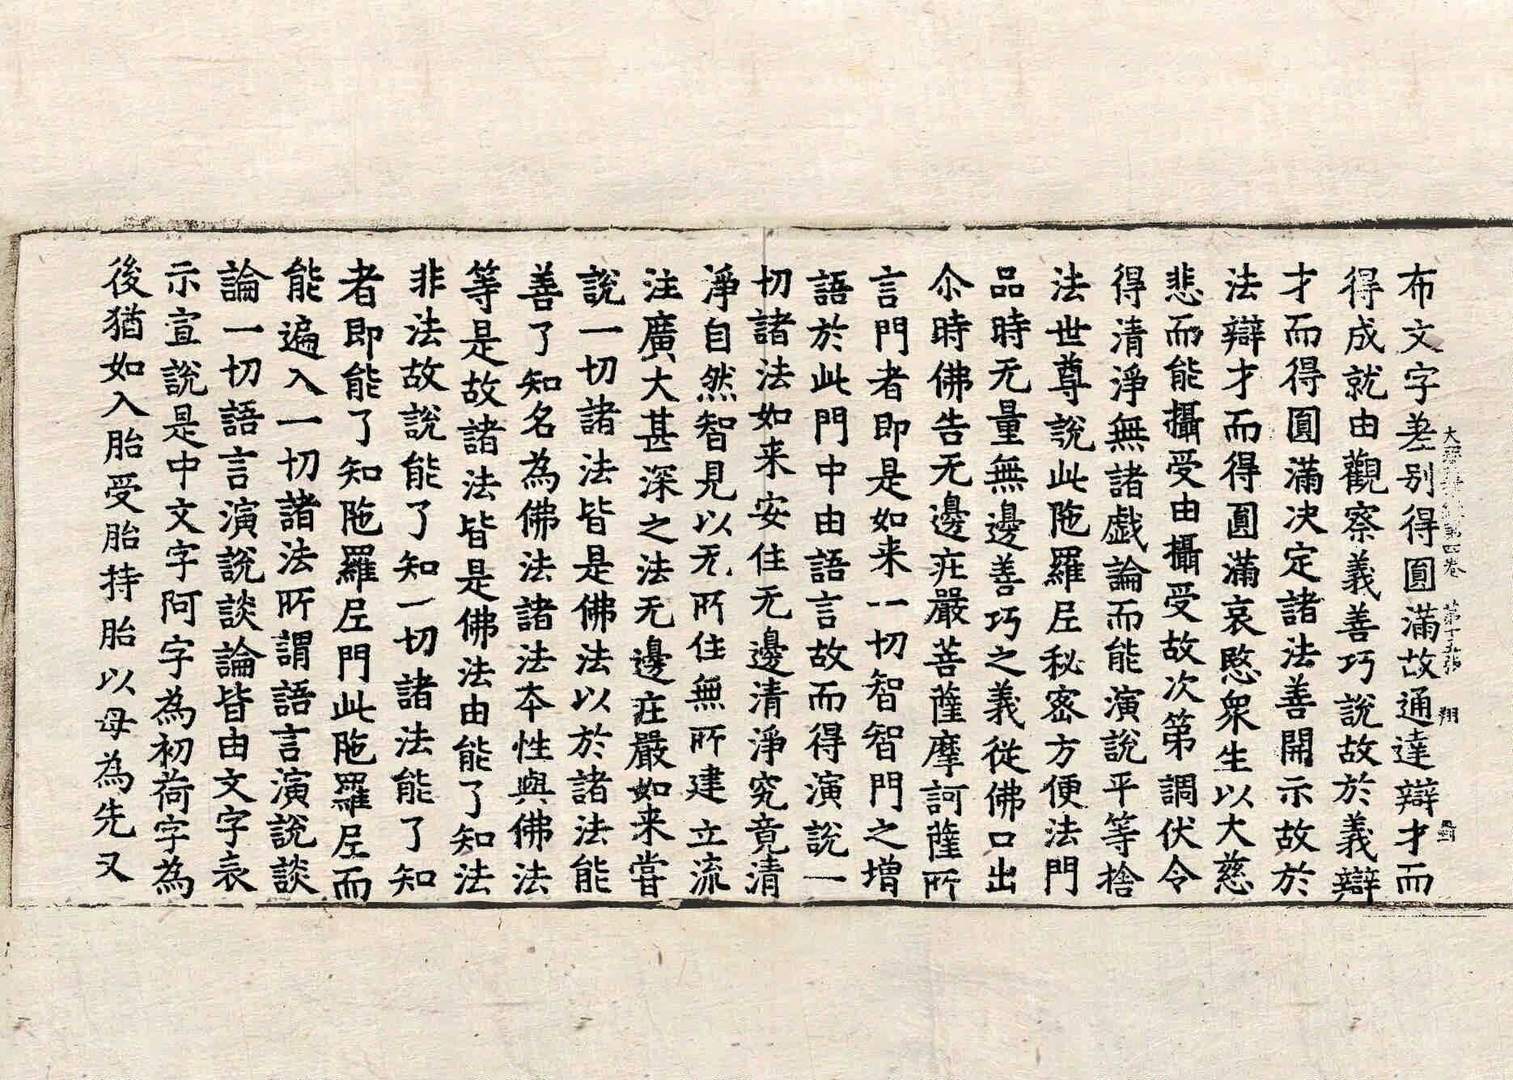 大寶積經第四卷 第十五張 翔
布文字差別得圓滿故通達辯才而
得成就由觀察義善巧說故於義辯
才而得圓滿決定諸法善開示故於
法辯才而得圓滿哀愍衆生以大慈
悲而能攝受由攝受故次第調伏令
得清淨無諸戲論而能演說平等捨
法世尊說此陁羅𡰱秘密方便法門
品時无量無邊善巧之義從佛口出
尒時佛告无邊疘嚴菩薩摩訶薩所
言門者即是如来一切智智門之增
語於此門中由語言故而得演說一
切諸法如来安住无邊清淨究竟清
淨自然智見以无所住無所建立流
注廣大甚深之法无邊疘嚴如来嘗
說一切諸法皆是佛法以於諸法能
善了知名為佛法諸法本性與佛法
等是故諸法皆是佛法由能了知法
非法故說能了知一切諸法能了知
者即能了知陁羅𡰱門此陁羅𡰱而
能遍入一切諸法所謂語言演說談
論一切語言演說談論皆由文字表
示宣說是中文字阿字為初荷字為
後猶如入胎受胎持胎以母為先又